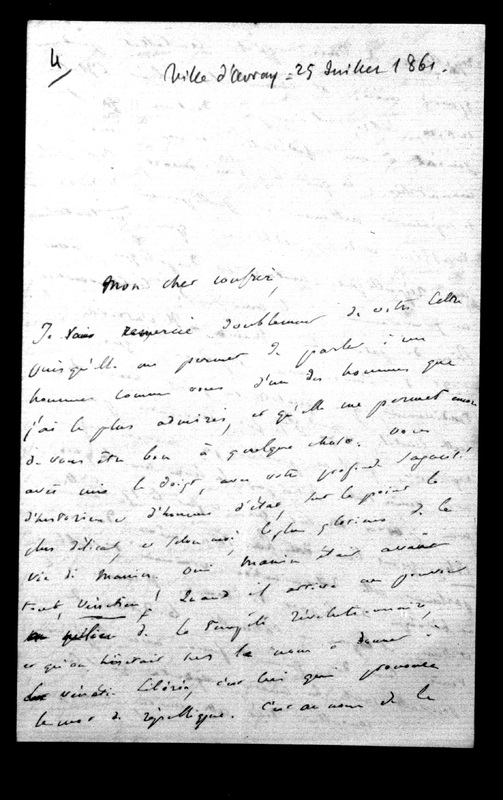 4
Ville d'Avray = 25 Juillet 1861.
Mon cher confrère,
Je vous remercie doublement de votre lettre
puisqu'elle me permet de parler à un
homme comme vous d'un des hommes que
j'ai le plus admirés, et qu'elle me permet encore
de vous être bon à quelque chose. Vous
avez mis le doigt, avec votre profond sagacité
d'historien et d'homme d'état, sur le point le
plus délicat, et selon moi, le plus glorieux de la
vie de Manin. Oui Manin était avant
tout, Vénitien! Quand il arriva au pouvoir
au milieu de la tempête révolutionnaire,
et qu'on hésitait sur le nom à donner à
Venise libérée, c'est lui qui prononça
le mot de république. C'est au nom de la